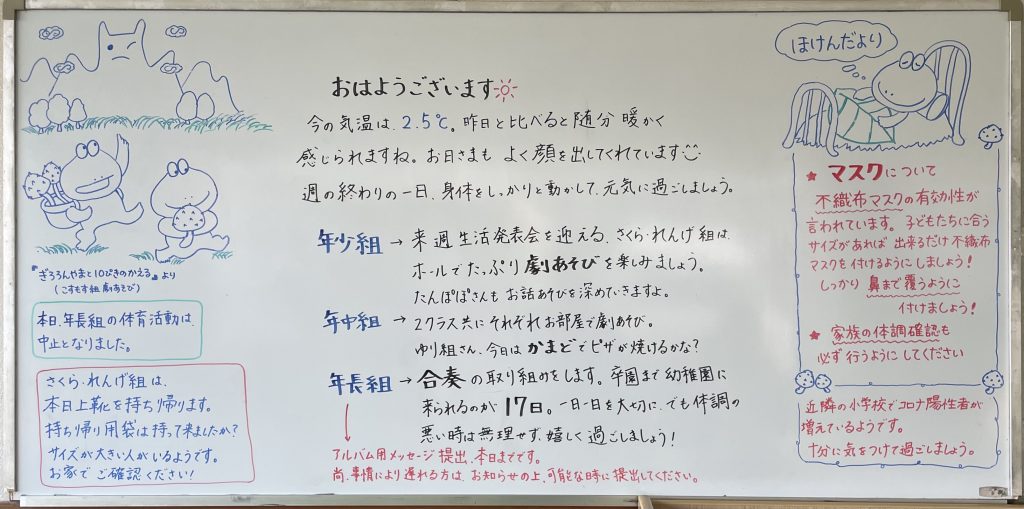 『ぎろろんやまと10ぴきのかえる』より
(こすもす組 劇あそび)
本日、年長組の体育活動は、
中止となりました。
さくら・れんげ組は、
本日上靴を持ち帰ります。
持ち帰り用袋は持って来ましたか?
サイズが大きい人がいるようです。
お家で ご確認ください!
おはようございます
今の気温は、2.5℃。昨日と比べると随分 暖かく
感じられますね。お日さまも よく顔を出してくれています
週の終わりの一日、身体をしっかりと動かして、元気に過ごしましょう。
年少組 → 来週生活発表会を迎える、さくら・れんげ組は、
ホールでたっぷり劇あそびを楽しみましょう。
たんぽぽさんも お話あそびを深めていきますよ。
年中組 → 2クラス共に それぞれお部屋で劇あそび。
ゆり組さん、今日は かまどでピザが焼けるかな?
年長組 → 合奏の取り組みをします。卒園まで幼稚園に
来られるのが 17日。一日一日を大切に、でも体調の
悪い時は無理せず、嬉しく過ごしましょう!
アルバム用メッセージ提出、本日までです。
尚、事情により遅れる方は、お知らせの上、可能な時に提出してください。
ほけんだより
★ マスクについて
不織布マスクの有効性が
言われています。子どもたちに合う
サイズがあれば 出来るだけ不織布
マスクを付けるように しましょう!
しっかり 鼻まで覆うように
付けましょう!
★ 家族の体調確認も
必ず 行うように してください
近隣の小学校でコロナ陽性者が
増えているようです。
十分に気をつけて過ごしましょう。